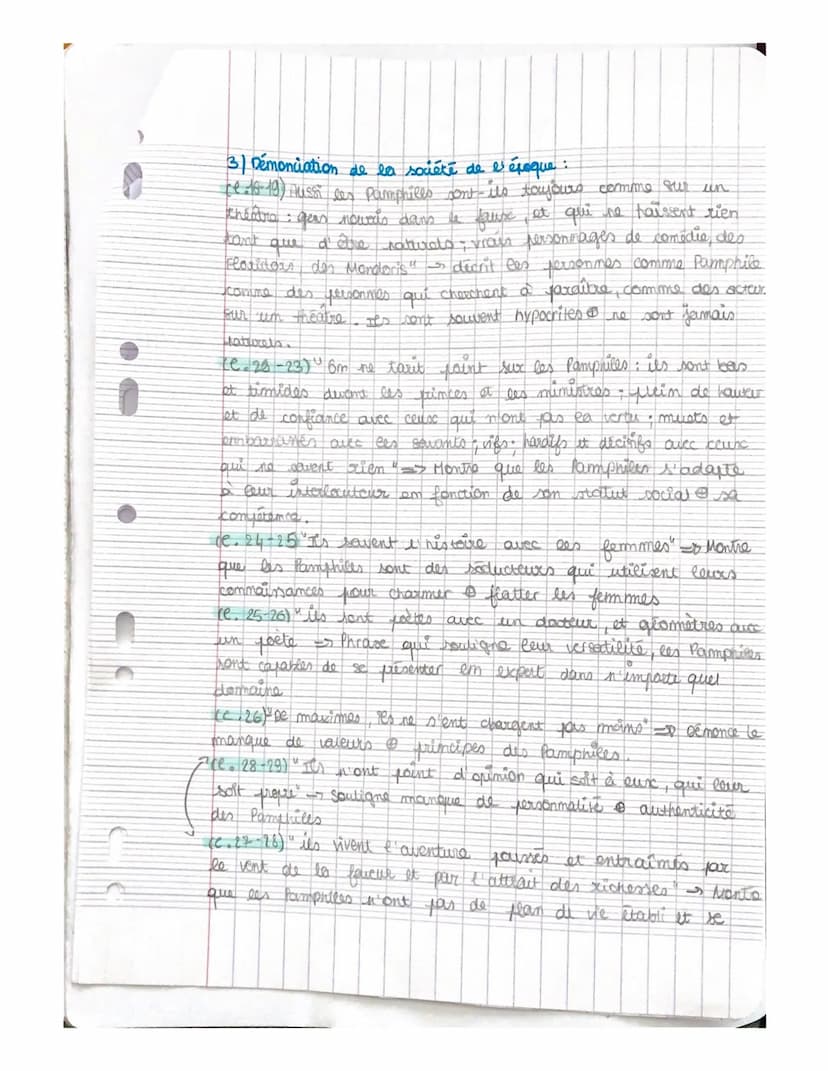 3) Dénonciation de la société de l'époque :
(l.18-19) Aussi les Pamphiles sont-ils toujours comme sur un
théâtre : gens nourris dans le faux, et qui ne haïssent rien
tant que d'être naturels ; vrais personnages de comédie, des
Floridors, des Mondoris" → décrit les personnes comme Pamphile
comme des personnes qui cherchent à paraître, comme des acteurs
sur un théâtre. Ils sont souvent hypocrites ⊕ ne sont jamais
naturels.
(l.20-23) " On ne tarit point sur les Pamphiles : ils sont bas
et timides devant les princes et les ministres ; plein de hauteur
et de confiance avec ceux qui n'ont pas la vertu ; muets et
embarrassés avec les savants ; vifs, hardifs et décisifs avec ceux
qui ne savent rien " => Montre que les Pamphiles s'adapte
à leur interlocuteur en fonction de son statut social ⊕ sa
compétence.
(l.24-25 "Ils savent l'histoire avec les femmes" => Montre
que les Pamphiles sont des séducteurs qui utilisent leurs
connaissances pour charmer ⊕ flatter les femmes
(l.25-26) " ils sont poètes avec un docteur, et géomètres avec
un poète => Phrase qui souligne leur versatilité, les Pamphiles
sont capables de se présenter em expert dans n'importe quel
domaine
(l.26) "De maximes, ils ne s'ent chargent pas moins" => Dénonce le
manque de valeurs ⊕ principes des Pamphiles.
(l.28-29) " Ils n'ont point d'opinion qui soit à eux, qui leur
soit propre" → souligne manque de personnalité ⊕ authenticité
des Pamphiles
(l.27-28) " ils vivent l'aventure poussés et entraînés par
le vent de la faveur et par l'attrait des richesses" → Montre
que les Pamphiles n'ont pas de plan de vie établi et se